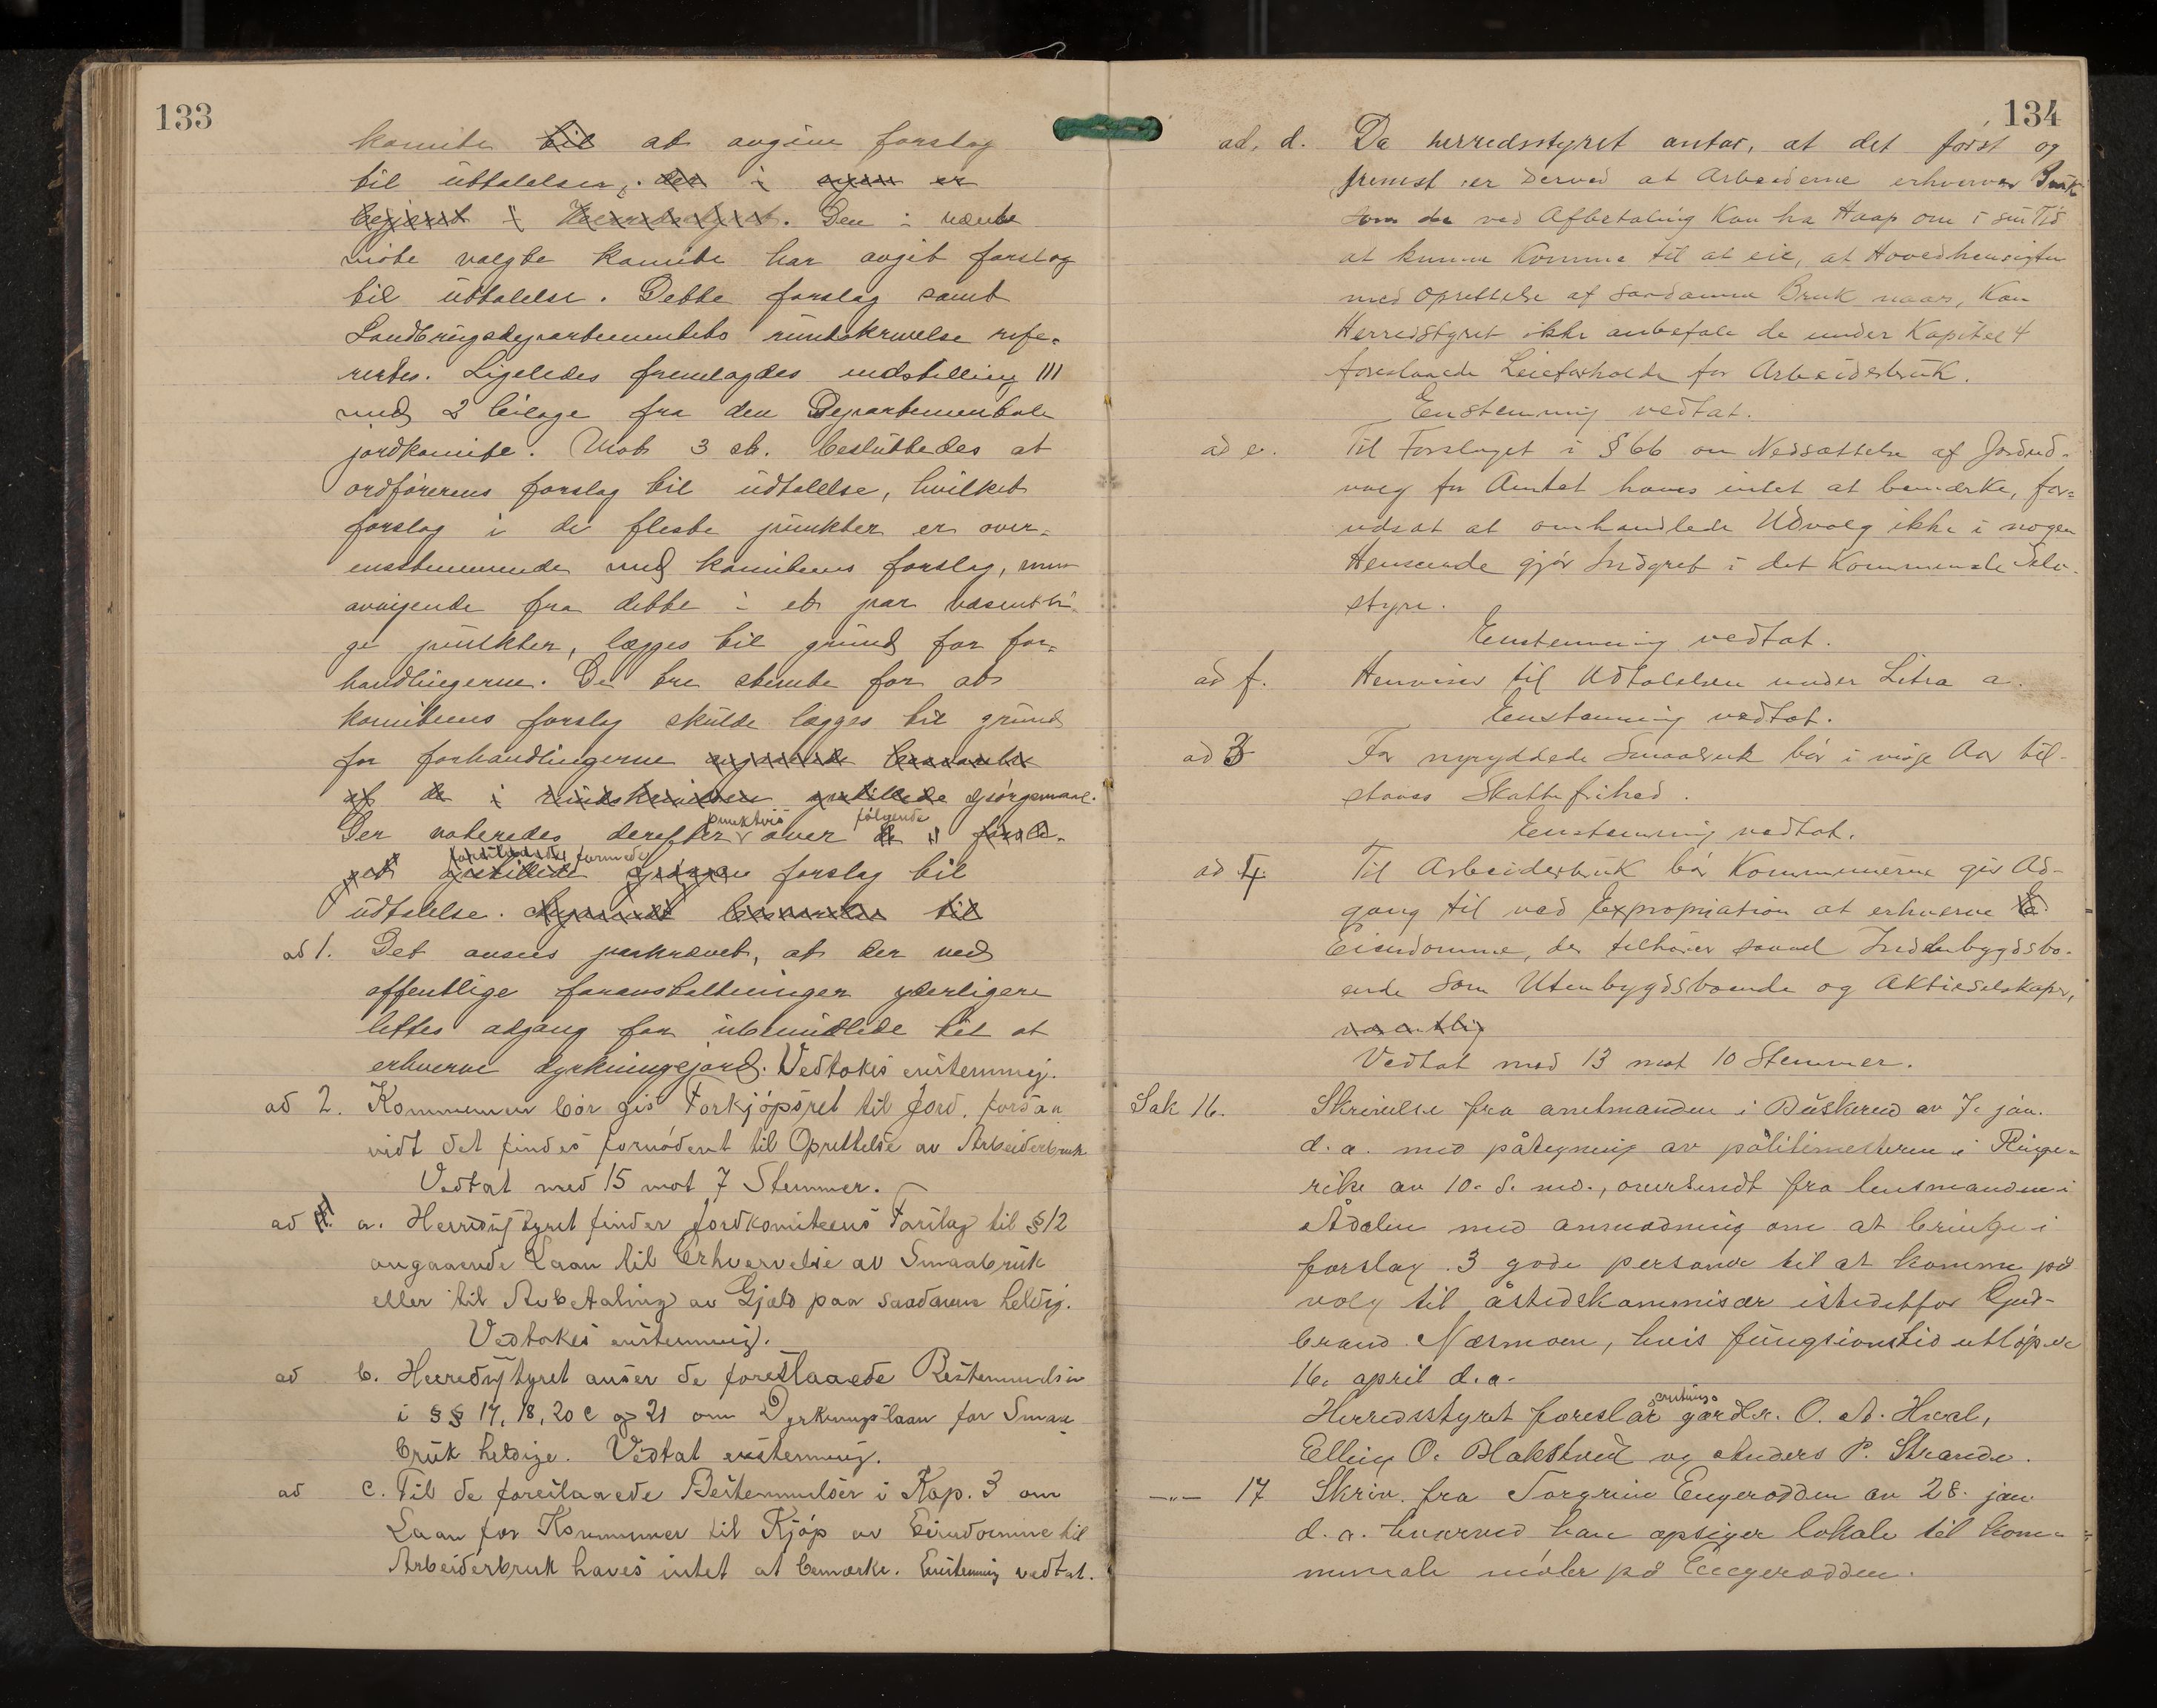 133
komite til at avgive forslag
til uttalelser, der i syn er
begjæret i Herredsstyret. Den i nævnte
møte valgte komite har avgit forslag
til uttalelse. Dette forslag samt
Landbrugsdepartementets rundskrivelse refe-
rertes. Ligeledes fremlagdes indstilling III
med 2 bilage fra den Departementale
jordkomite. Mot 3 st. besluttedes at
ordførerens forslag til udtalelse, hvilket
forslag i de fleste punkter er over-
ensstemmende med komiteens forslag, men
avvigende fra dette i et par væsentli
ge punkter, lægges til grund for for-
handlingerne. De tre stemte for at
komiteens forslag skulde lægges til grund
for forhandlingerne angaaende besvarelse
af de i rundskrivelsen opstillede spørgsmaal.
Der voteredes derefter punktvis over følgende
formede forslag til
udtalelse. til
ad 1. Det ansees paakrævet, at der ved
offentlige foranstaltninger yderligere
lettes adgang for ubemidlede til at
erhverve dyrkningsjord. Vedtokes enstemmig.
ad 2. Kommunen bør gis Forkjøpsret til Jord, forsaa
vidt det findes fornødent til Oprettelse av Arbeiderbruk
Vedtat med 15 mot 7 Stemmer.
ad a. Herredsstyret finder Jordkomiteens Forslag til § 12
angaaende Laan til Erhvervelse av Smaabruk
eller til Avbetaling av Gjæld paa saadanne heldig.
Vedtokes enstemmig.
ad b. Herredsstyret anser de foreslaaede Bestemmelser
i §§ 17, 18, 20 c og 21 om Dyrkningslaan for Smaa-
bruk heldige. Vedtat enstemmig.
ad c. Til de foreslaaede Bestemmelser i Kap. 3 om
Laan for Kommuner til Kjøp av Eiendomme til
Arbeiderbruk haves intet at bemærke. Enstemmig vedtat.
134
ad. d. Da herredsstyret antar, at det først og
fremst er derved at Arbeiderne erhverver Bruk
som de ved Afbetaling kan ha Haap om i sin Tid
at kunne komme til at eie, at Hovedhensigten
med Oprettelse af saadanne Bruk naaes, kan
Herredstyret ikke anbefale de under Kapitel 4
foreslaaede Leieforholde for Arbeiderbruk.
Enstemmig vedtat.
ad e. Til Forslaget i § 66 om Nedsættelse af Jordud-
valg for Amtet haves intet at bemærke, for-
udsat at omhandlede Udvalg ikke i nogen
Henseende gjør Indgreb i det kommunale Selv-
styre.
Enstemmig vedtat.
ad f. Henviser til Udtalelsen under Litra a.
Enstemmig vedtat.
ad 3 For nyryddede Smaabruk bør i visse Aar til-
staaes Skattefrihed.
Enstemmig vedtat.
ad 4. Til Arbeiderbruk bør Kommunerne gis Ad-
gang til ved Expropriation at erhverve E
Eiendomme, der tilhører saavel Indenbygdsbo-
ende som Utenbygdsboende og Aktieselskaper,
væsentlig
Vedtat med 13 mot 10 Stemmer.
Sak 16. Skrivelse fra amtmanden i Buskerud av 7. jan.
d. a. med påtegning av politimesteren i Ringe-
rike av 10. d. md., oversendt fra lensmanden i
Ådalen med anmodning om at bringe i
forslag 3 gode personer til at komme på
valg til åstedskommisær istedetfor Gud-
brand Næsmoen, hvis fungsionstid utløper
16. april d. a.
Herredsstyret foreslår gårdbr. O. A. Hval,
Elling O. Blakstved og Anders P. Strande.
—"— 17 Skriv. fra Torgrim Engerodden av 28. jan.
d. a. hvorved han opsiger lokale til kom-
munale møter på Engerodden.